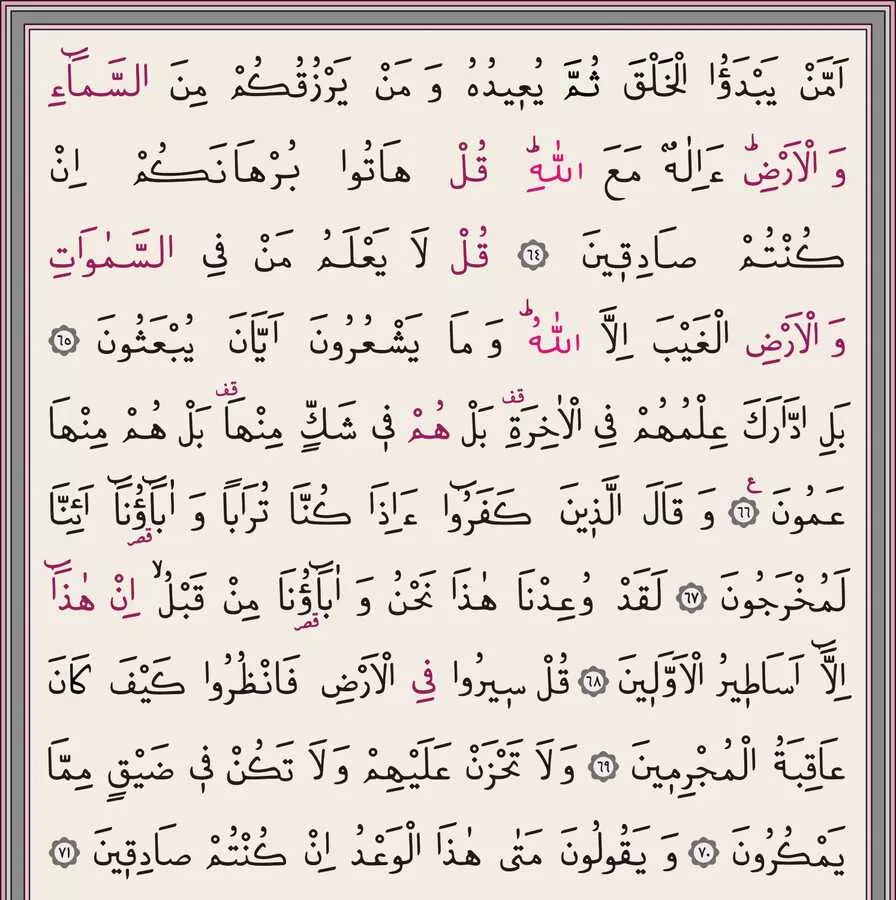 اَمَّنْ يَبْدَؤُا الْخَلْقَ ثُمَّ يُعٖيدُهُ وَ مَنْ يَرْزُقُكُمْ مِنَ السَّمَٓاءِ
وَ الْاَرْضِؕ ءَاِلٰهٌ مَعَ اللّٰهِؕ قُلْ هَاتُوا بُرْهَانَكُمْ اِنْ
كُنْتُمْ صَادِقٖينَ ٦٤ قُلْ لَا يَعْلَمُ مَنْ فِى السَّمٰوَاتِ
وَ الْاَرْضِ الْغَيْبَ اِلَّا اللّٰهُؕ وَ مَا يَشْعُرُونَ اَيَّانَ يُبْعَثُونَ ٦٥
بَلِ ادَّارَكَ عِلْمُهُمْ فِى الْاٰخِرَةِࣞ قف بَلْ هُمْ فٖى شَكٍّ مِنْهَا قف بَلْ هُمْ مِنْهَا
عَمُونَ ٦٦ ع وَ قَالَ الَّذٖينَ كَفَرُٓوا ءَاِذَا كُنَّا تُرَابًا وَ اٰبَٓاؤُنَٓا قصر اَئِنَّا
لَمُخْرَجُونَ ٦٧ لَقَدْ وُعِدْنَا هٰذَا نَحْنُ وَ اٰبَٓاؤُنَا قصر مِنْ قَبْلُۙ اِنْ هٰذَٓا
اِلَّٓا اَسَاطٖيرُ الْاَوَّلٖينَ ٦٨ قُلْ سٖيرُوا فِى الْاَرْضِ فَانْظُرُوا كَيْفَ كَانَ
عَاقِبَةُ الْمُجْرِمٖينَ ٦٩ وَلَا تَحْزَنْ عَلَيْهِمْ وَلَا تَكُنْ فٖى ضَيْقٍ مِمَّا
يَمْكُرُونَ ٧٠ وَ يَقُولُونَ مَتٰى هٰذَا الْوَعْدُ اِنْ كُنْتُمْ صَادِقٖينَ ٧١